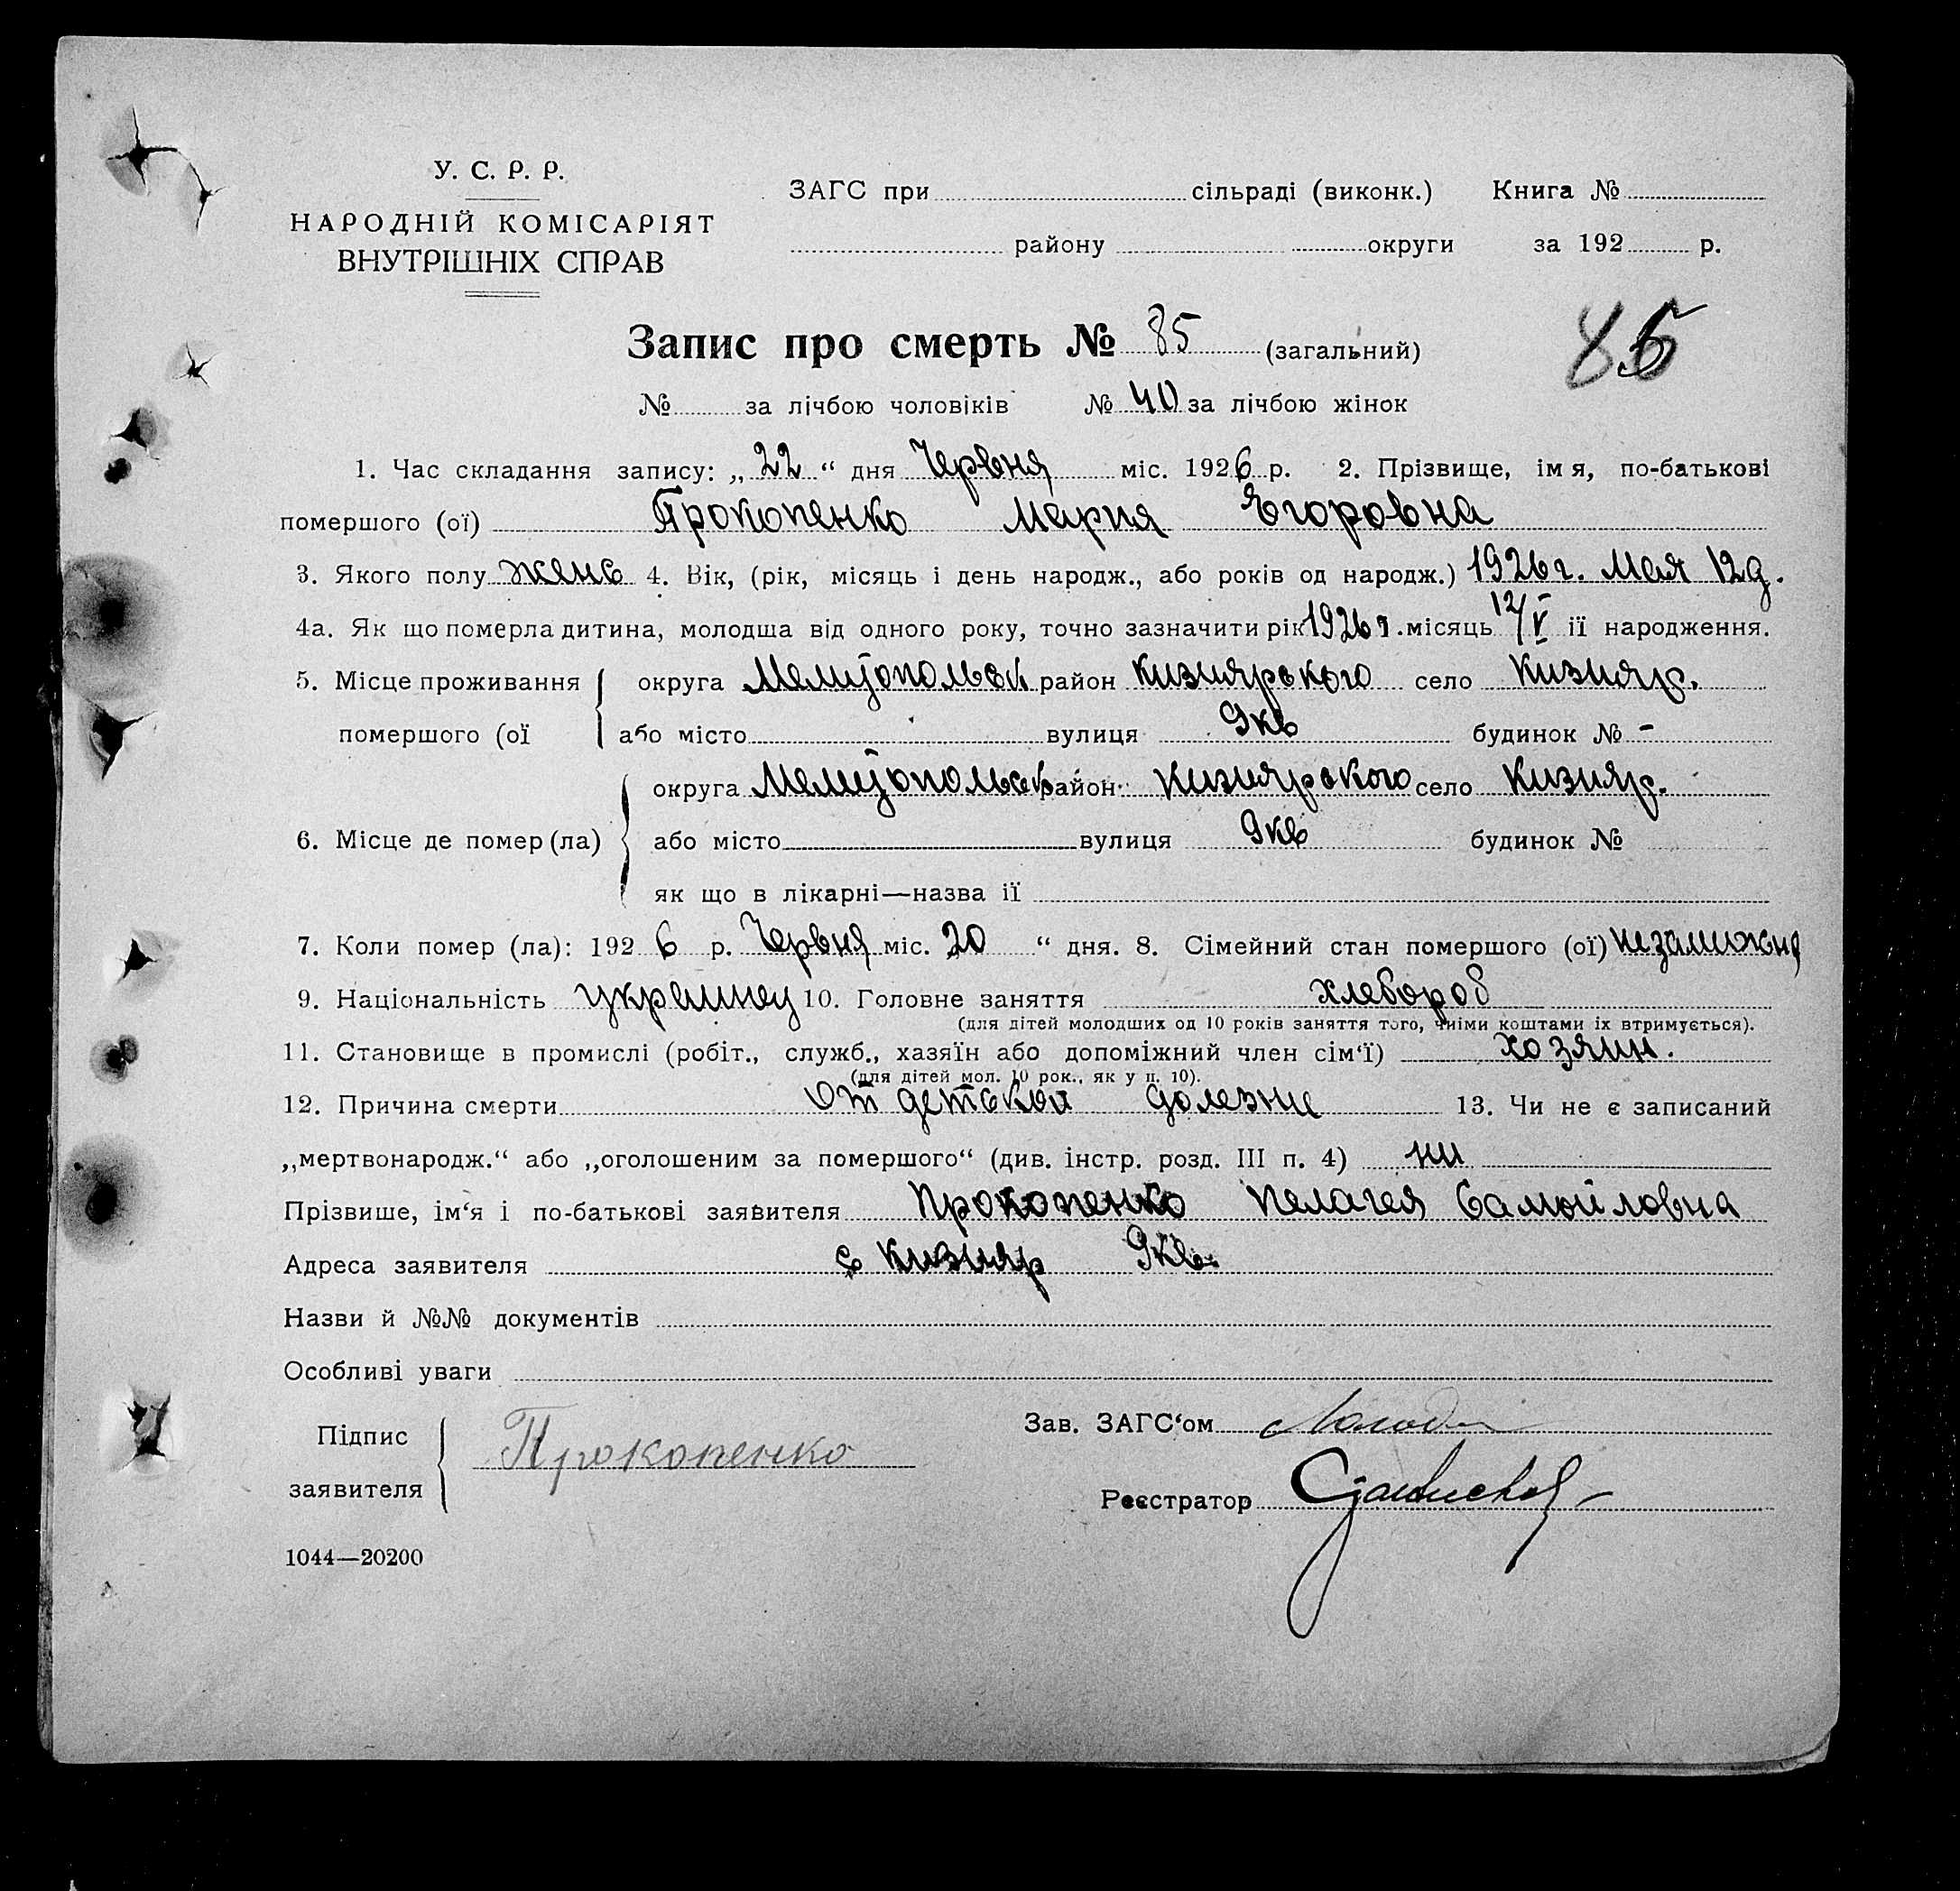 У. С. Р. Р.
НАРОДНІЙ КОМІСАРІЯТ
ВНУТРІШНІХ СПРАВ
ЗАГС при сільраді (виконк.) Книга №
району округи за 192 р.
Запис про смерть № 85 (загальний)
85
№ за лічбою чоловіків № 40 за лічбою жінок
1. Час складання запису: „ 22 “ дня Червня міс. 1926 р. 2. Прізвище, імя, по-батькові
помершого (ої) Прокопенко Мария Егоровна
3. Якого полу женс 4. Вік, (рік, місяць і день народж., або років од народж.) 1926 г. Мая 12 д.
4а. Як що померла дитина, молодша від одного року, точно зазначити рік 1926 г. місяць 12/V ії народження.
5. Місце проживання округа Мелитопольск район Кизиярського село Кизияр.
помершого (ої або місто вулиця 9 кв будинок № -
округа Мелитопольск район Кизиярського село Кизияр.
6. Місце де помер (ла) або місто вулиця 9 кв будинок №
як що в лікарні—назва ії
7. Коли помер (ла): 192 6 р. Червня міс. 20 “ дня. 8. Сімейний стан помершого (ої) незаможня
9. Національність 10. Головне заняття хлебороб
(для дітей молодших од 10 років заняття того, чиїми коштами їх втримується).
11. Становище в промислі (робіт., служб., хазяїн або допоміжний член сім‘ї) хозяин.
(для дітей мол. 10 рок., як у п. 10).
12. Причина смерти От детской болезни 13. Чи не є записаний
„мертвонародж.“ або „оголошеним за помершого“ (див. інстр. розд. III п. 4) ни
Прізвише, ім‘я і по-батькові заявителя Прокопенко Пелагея Самойловна
Адреса заявителя с Кизияр 9 кв.
Назви й №№ документів
Особливі уваги
Підпис
заявителя Прокопенко
Зав. ЗАГС‘ом
Реєстратор
1044—20200